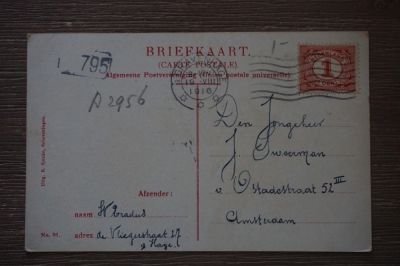 BRIEFKAART.
(CARTE POSTALE.)
Algemeene Postvereeniging (Union postale universelle)
1 795
A 2956
1916
1
Den Jongeheer
J
v Ostadestraat 52 III
Amsterdam
Afzender:
naam
adres de Vliegerstraat 27
's Hage.
No. 81.